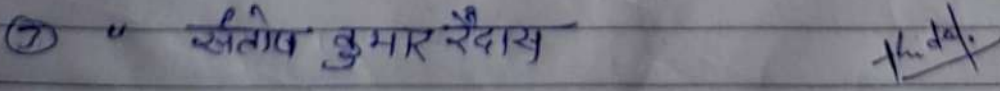 ⑦ " संतोष कुमार रैदास